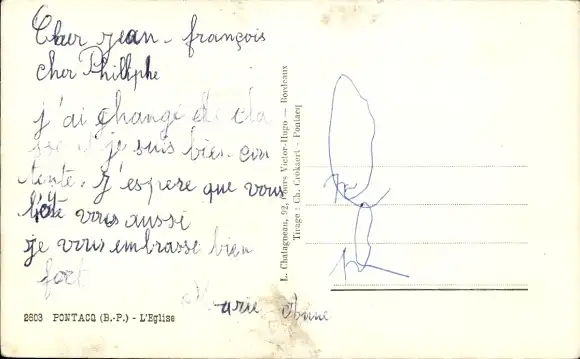 Cher jean-françois
cher Phillphe
j'ai changé de cla
sse et je suis bien con
tente. j'espere que vous
vous aussi
je vous embrasse bien
fort
Marie Anne
2603 PONTACQ (B.-P.) - L'Eglise
L. Chatagneau, 92, Cours Victor-Hugo — Bordeaux
Tirage : Ch. Crokaert - Pontacq